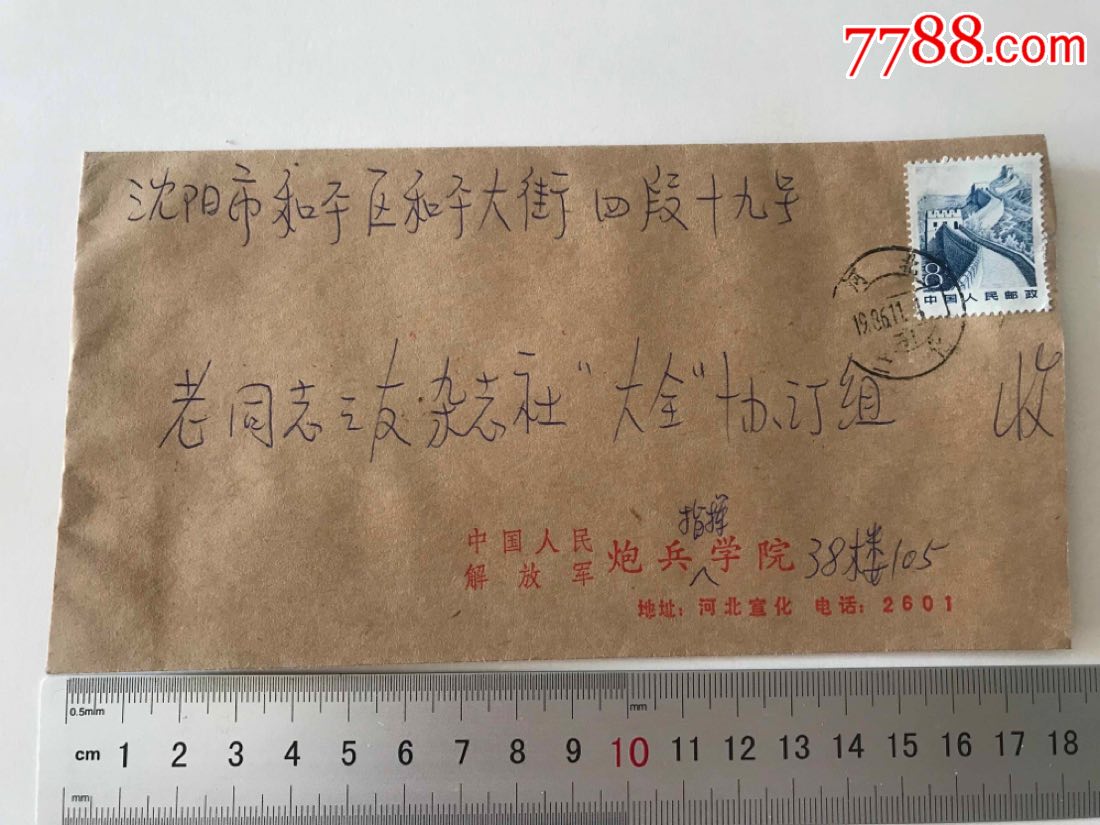 7788.com
沈阳市和平区和平大街四段十九号
8
中国人民邮政
河北
19.86.11
老同志之友杂志社"大全"协订组 收
指挥
中国人民解放军 炮兵学院 38楼105
地址：河北宣化 电话：2601
0.5mm
mm
cm 1 2 3 4 5 6 7 8 9 10 11 12 13 14 15 16 17 18
mm